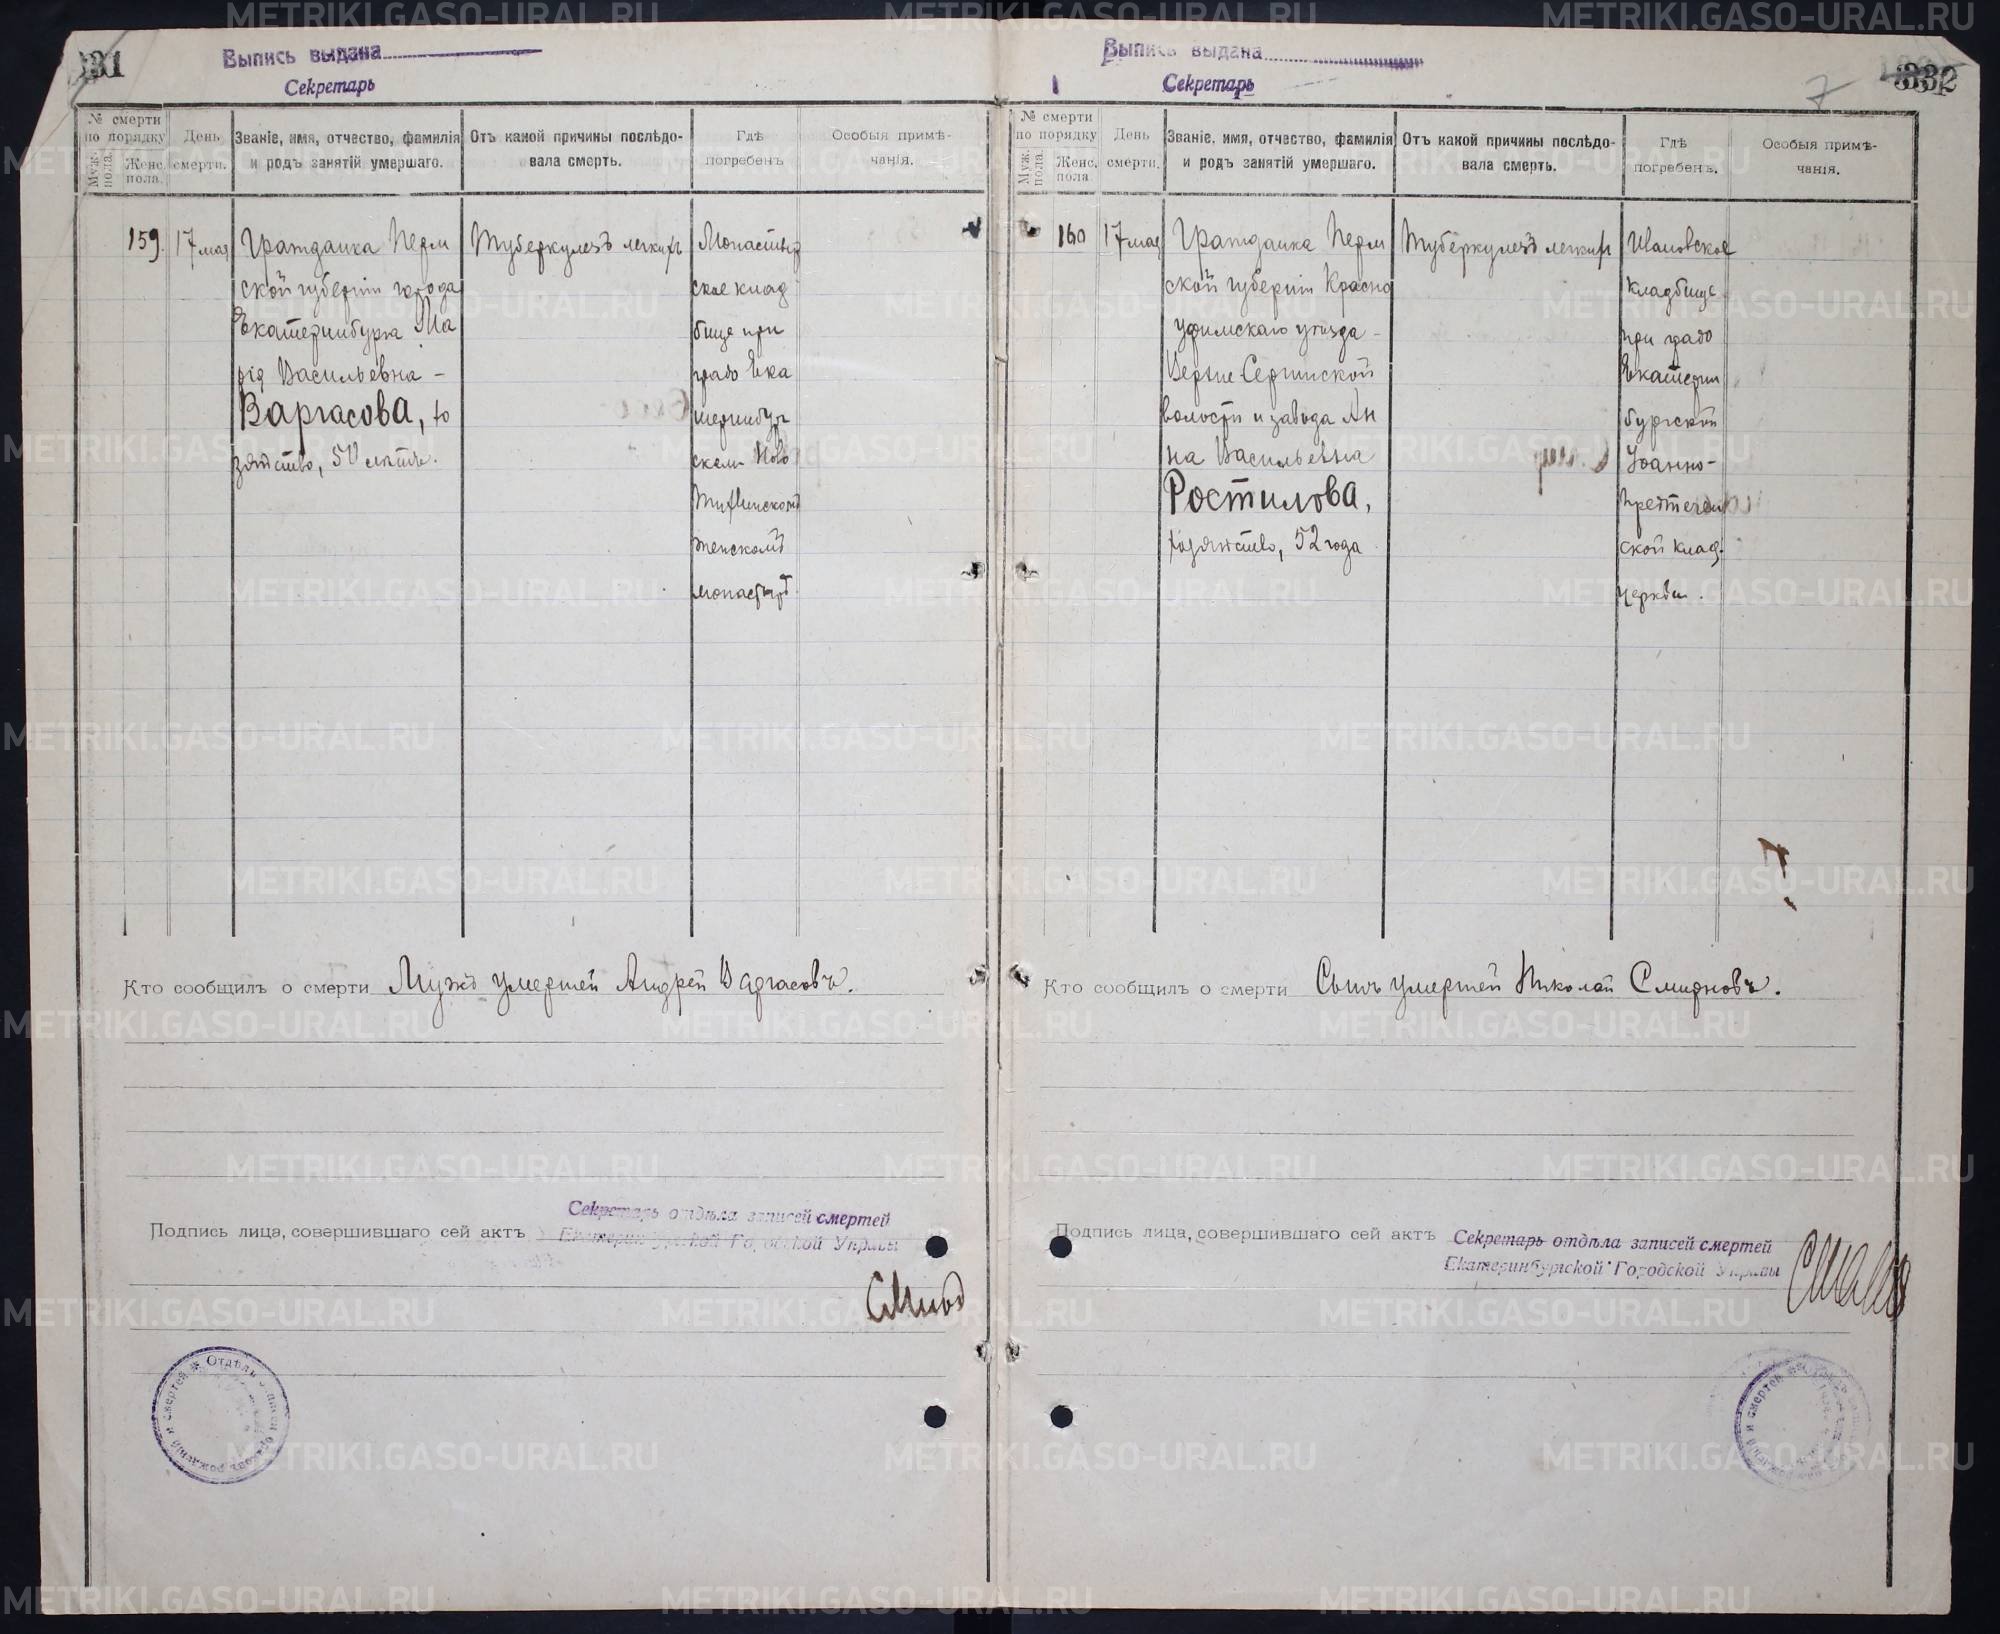 331
Выпись выдана
Секретарь
№ смерти по порядку
Муж. пола.
Женс. пола.
День смерти.
Званіе, имя, отчество, фамилія и родъ занятій умершаго.
Отъ какой причины послѣдовала смерть.
Гдѣ погребенъ
Особыя примѣчанія.
159.
17 мая
Гражданка Перм
ской губерніи города
Екатеринбурга Ма
рія Васильевна -
Варгасова, хо
зяйство, 50 лѣтъ.
Туберкулезъ легкихъ
Монастыр
ское клад
бище при
градо Ека
теринбург
скомъ Ново
Тихвинскомъ
женскомъ
монастырѣ
Кто сообщилъ о смерти Мужъ умершей Андрей Варгасовъ.
Подпись лица, совершившаго сей актъ
Секретарь отдѣла записей смертей
Екатеринбургской Городской Управы
332
7
Выпись выдана
Секретарь
№ смерти по порядку
Муж. пола.
Женс. пола
День смерти.
Званіе, имя, отчество, фамилія и родъ занятій умершаго.
Отъ какой причины послѣдовала смерть.
Гдѣ погребенъ.
Особыя примѣчанія.
160
17 мая
Гражданка Перм
ской губерніи Красно
уфимскаго уѣзда -
Верхне Сергинской
волости и завода Ан
на Васильевна
Ростилова,
хозяйство, 52 года
Туберкулезъ легких
Ивановское
кладбище
при градо
Екатерин
бургской
Іоанно-
Предтечен
ской клад.
церкви.
Кто сообщилъ о смерти Сынъ умершей Николай Смирновъ.
Подпись лица, совершившаго сей актъ
Секретарь отдѣла записей смертей
Екатеринбургской Городской Управы
METRIKI.GASO-URAL.RU